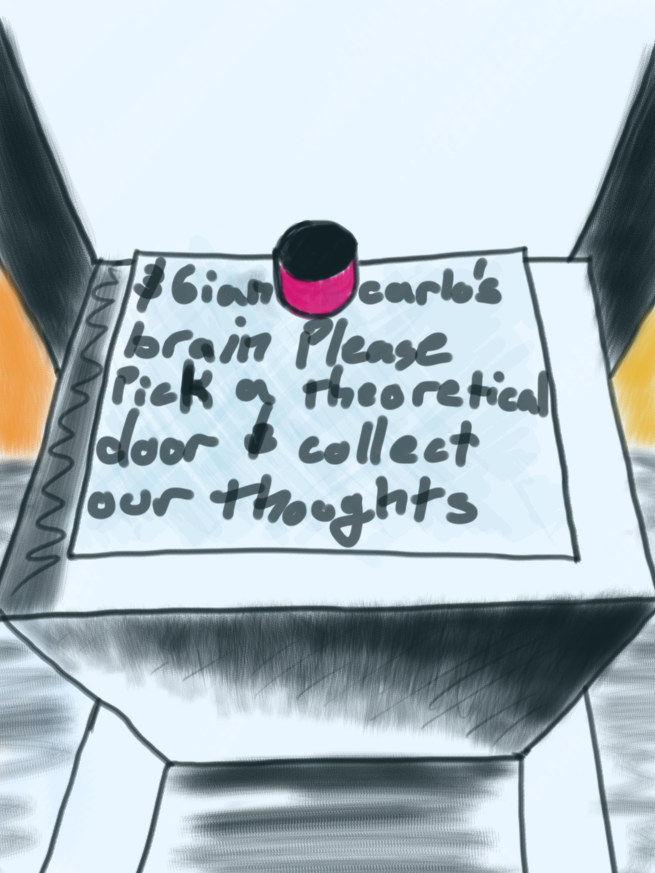 Giancarlo's
brain Please
Pick a theoretical
door & collect
our thoughts